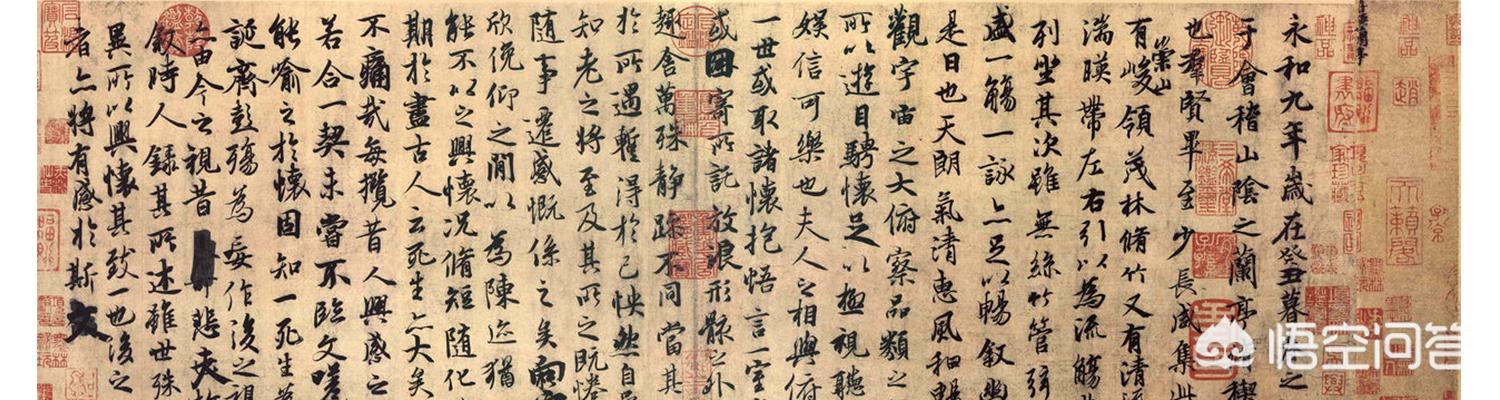 永和九年歲在癸丑暮春之
于會稽山陰之蘭亭禊
也羣賢畢至少長咸集此
有崇山峻領茂林脩竹又有清流
湍暎帶左右引以為流觴
列坐其次雖無絲竹管弦
盛一觴一詠亦足以暢敘幽
是日也天朗氣清惠風和暢
觀宇宙之大俯察品類之
所以遊目騁懷足以極視聽
娛信可樂也夫人之相與俯
一世或取諸懷抱悟言一室
或因寄所託放浪形骸之外
趣舍萬殊静躁不同當其
於所遇蹔得於己怏然自
知老之將至及其所之既惓
隨事遷感慨係之矣向
欣俛仰之閒以為陳迹猶
能不以之興懷况脩短隨化
期於盡古人云死生亦大矣
不痛哉每攬昔人興感之
若合一契未嘗不臨文嗟
能喻之於懷固知一死生為
誕齊彭殤為妄作後之視
亦由今之視昔悲夫故
敘時人錄其所述雖世殊
異所以興懷其致一也後之
者亦將有感於斯文
悟空问答